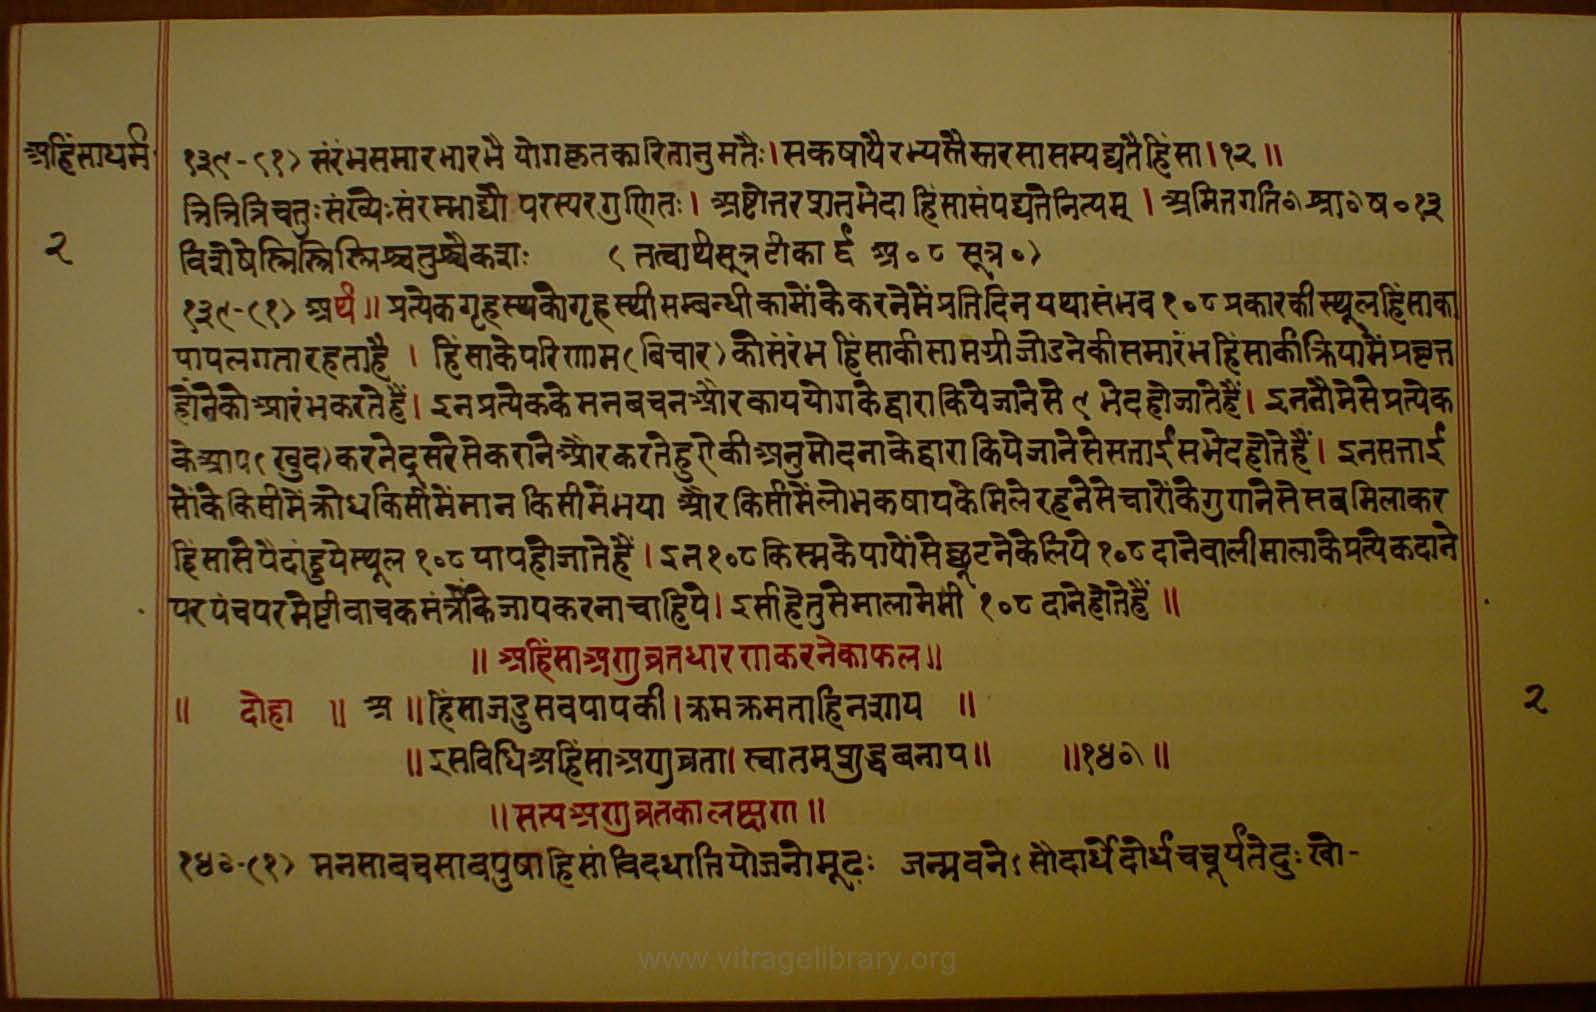 अहिंसाधर्म
२
१३९-(१) संरंभसमारभारभै योगकृतकारितानुमतैः। सकषायैरभ्यतैस्तरसासम्पद्यतैहिंसा।१२॥
त्रित्रित्रिचतुःसंख्यैःसंरम्भाद्यौ परस्परगुणितः। अष्टोतरशतमेदा हिंसासंपद्यतेनित्यम् । अमितगति० श्रा० ष०१३
विशेषेस्त्रिस्त्रिस्त्रिश्चतुश्चैकशः (तत्वार्थसूत्रटीका अ०८ सूत्र०)
१३९-(१) अर्थ॥ प्रत्येकगृहस्थकोगृहस्थीसम्बन्धीकामोंकेकरनेमेंप्रतिदिनयथासंभव१०८प्रकारकीस्थूलहिंसाका
पापलगतारहताहै । हिंसाकेपरिणाम(बिचार)कोसंरंभ हिंसाकीसामग्रीजोडनेकीसमारंभहिंसाकीक्रियामेंप्रवृत्त
होनेकोआरंभकरतेहैं। इनप्रत्येककेमनबचनऔरकाययोगकेद्वाराकियेजानेसे ९ भेदहोजातेहैं। इननौमेसेप्रत्येक
केआप(खुद)करनेदूसरेसेकरानेऔरकरतेहुऐकीअनुमोदनाकेद्वाराकियेजानेसेसत्ताईसभेदहोतेहैं। इनसत्ताई
सोंकेकिसीमेंक्रोधकिसीमेंमान किसीमेंमया औरकिसीमेंलोभकषायकेमिलेरहनेसेचारोंकेगुणानेसेसबमिलाकर
हिंसासेपैदाहुयेस्थूल १०८ पापहोजातेहैं। इन१०८किस्मकेपापोंसेछूटनेकेलिये १०८ दानेवालीमालाकेप्रत्येकदाने
परपंचपरमेष्टीवाचकमंत्रोंकेजापकरनाचाहिये। इसीहेतुसेमालामेंभी १०८ दानेहोतेहैं ॥
॥ अहिंसाअणुव्रतधारणाकरनेकाफल॥
॥ दोहा ॥ अ ॥हिंसाजडुसवपापकी।क्रमक्रमताहिनशाय ॥
२
॥इसविधिअहिंसाअणुव्रता। स्वातमशुद्धबनाय॥ ॥१४०॥
॥सत्यअणुव्रतकालक्षण॥
१४०-(१) मनसाबचसाबपुषाहिंसांविदधातियोजनोमूढः जन्मवनेऽसौदीर्घेदीर्घंचचूर्यतेदुःखो-
www.vitragelibrary.org